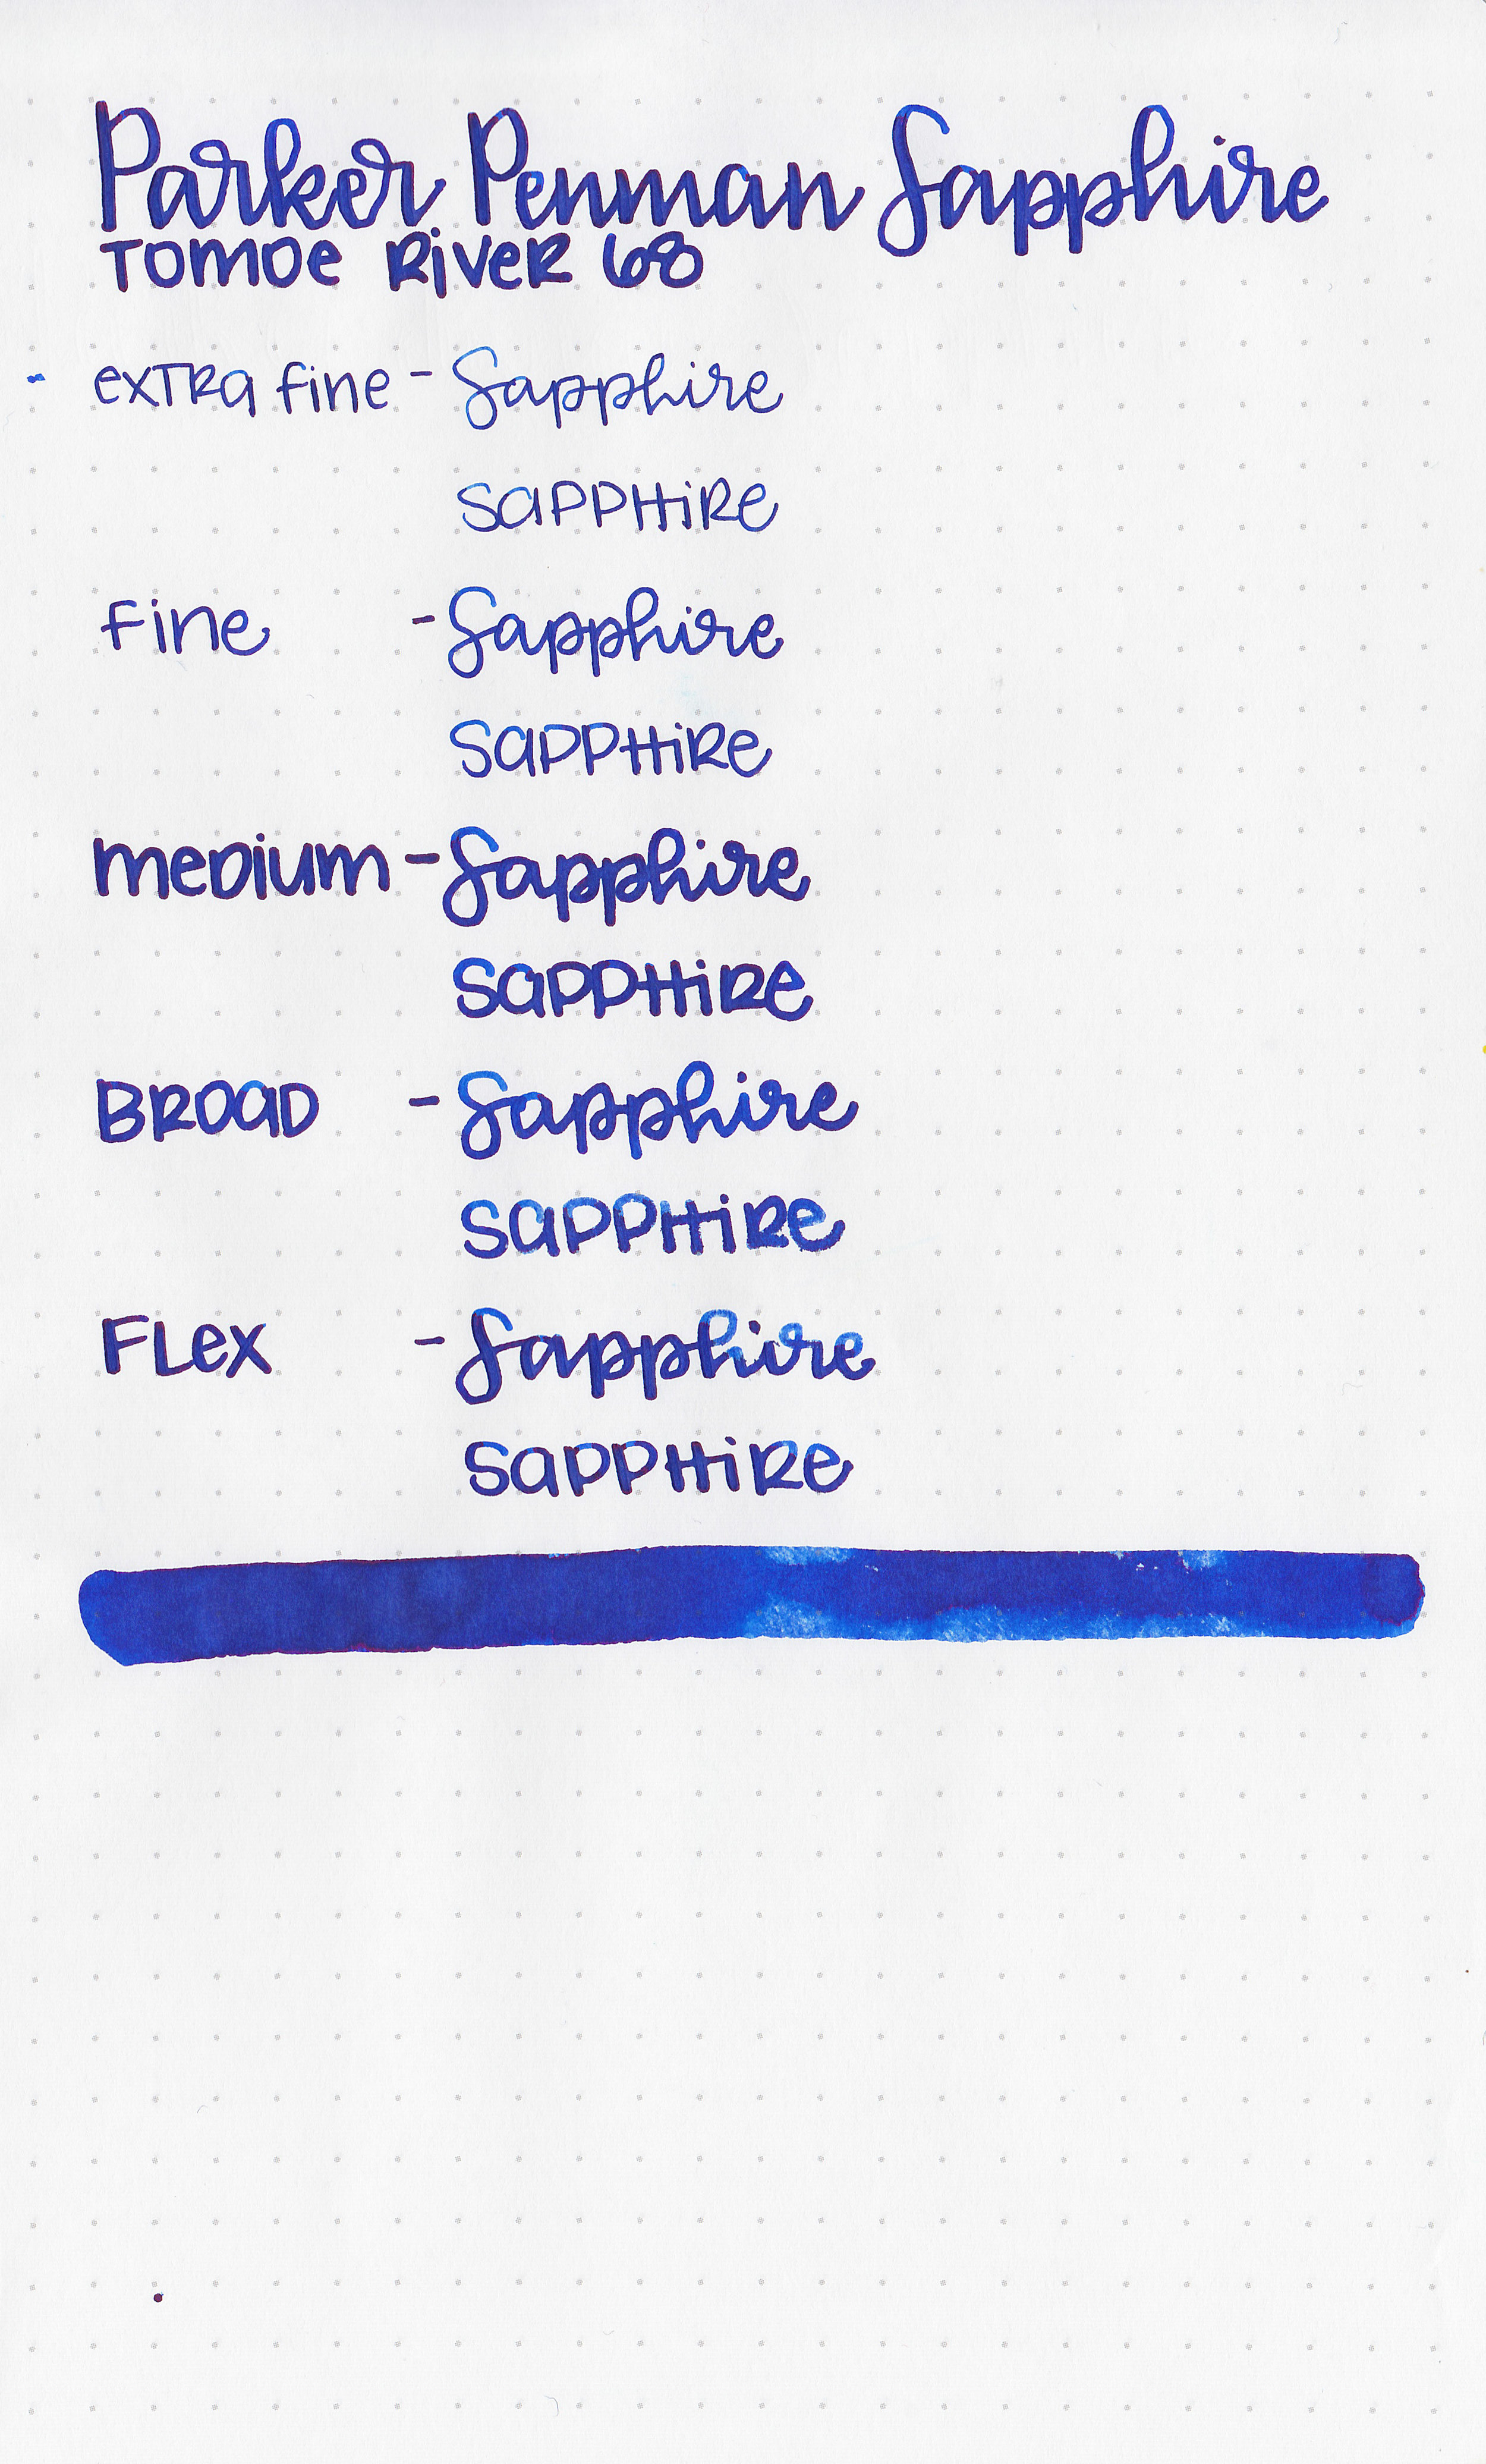 Parker Penman Sapphire
TOMOE RiVER 68
exTRa fine - Sapphire
SaPPHiRe
Fine - Sapphire
SaPPHiRe
meDium - Sapphire
SaPPHiRe
BROaD - Sapphire
SaPPHiRe
FLex - Sapphire
SaPPHiRe